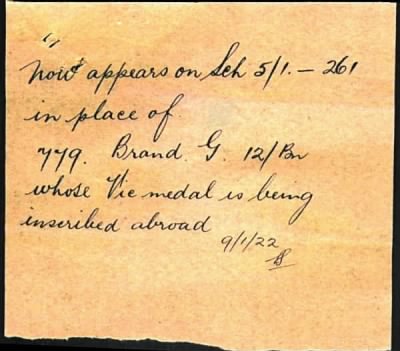 "
Now appears on Sch 5/1. – 261
in place of
779. Brand. G. 12/Bn
whose Vic medal is being
inscribed abroad
9/1/22